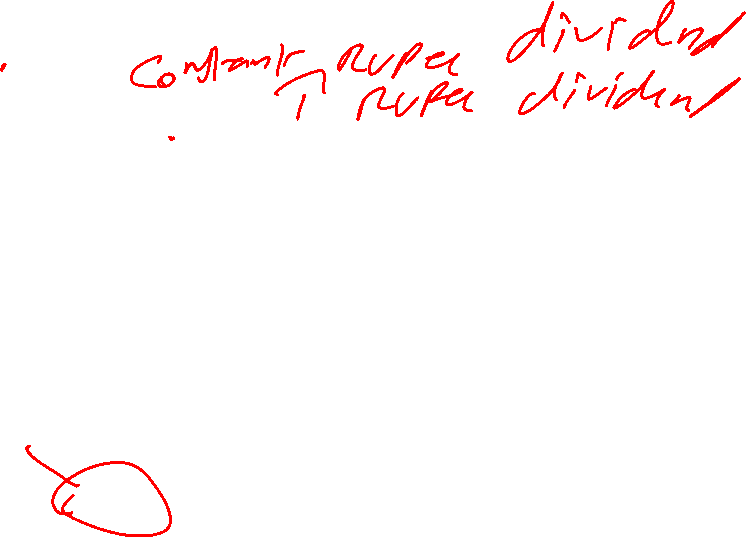 Constant Rupee dividend
↑ Rupee dividend